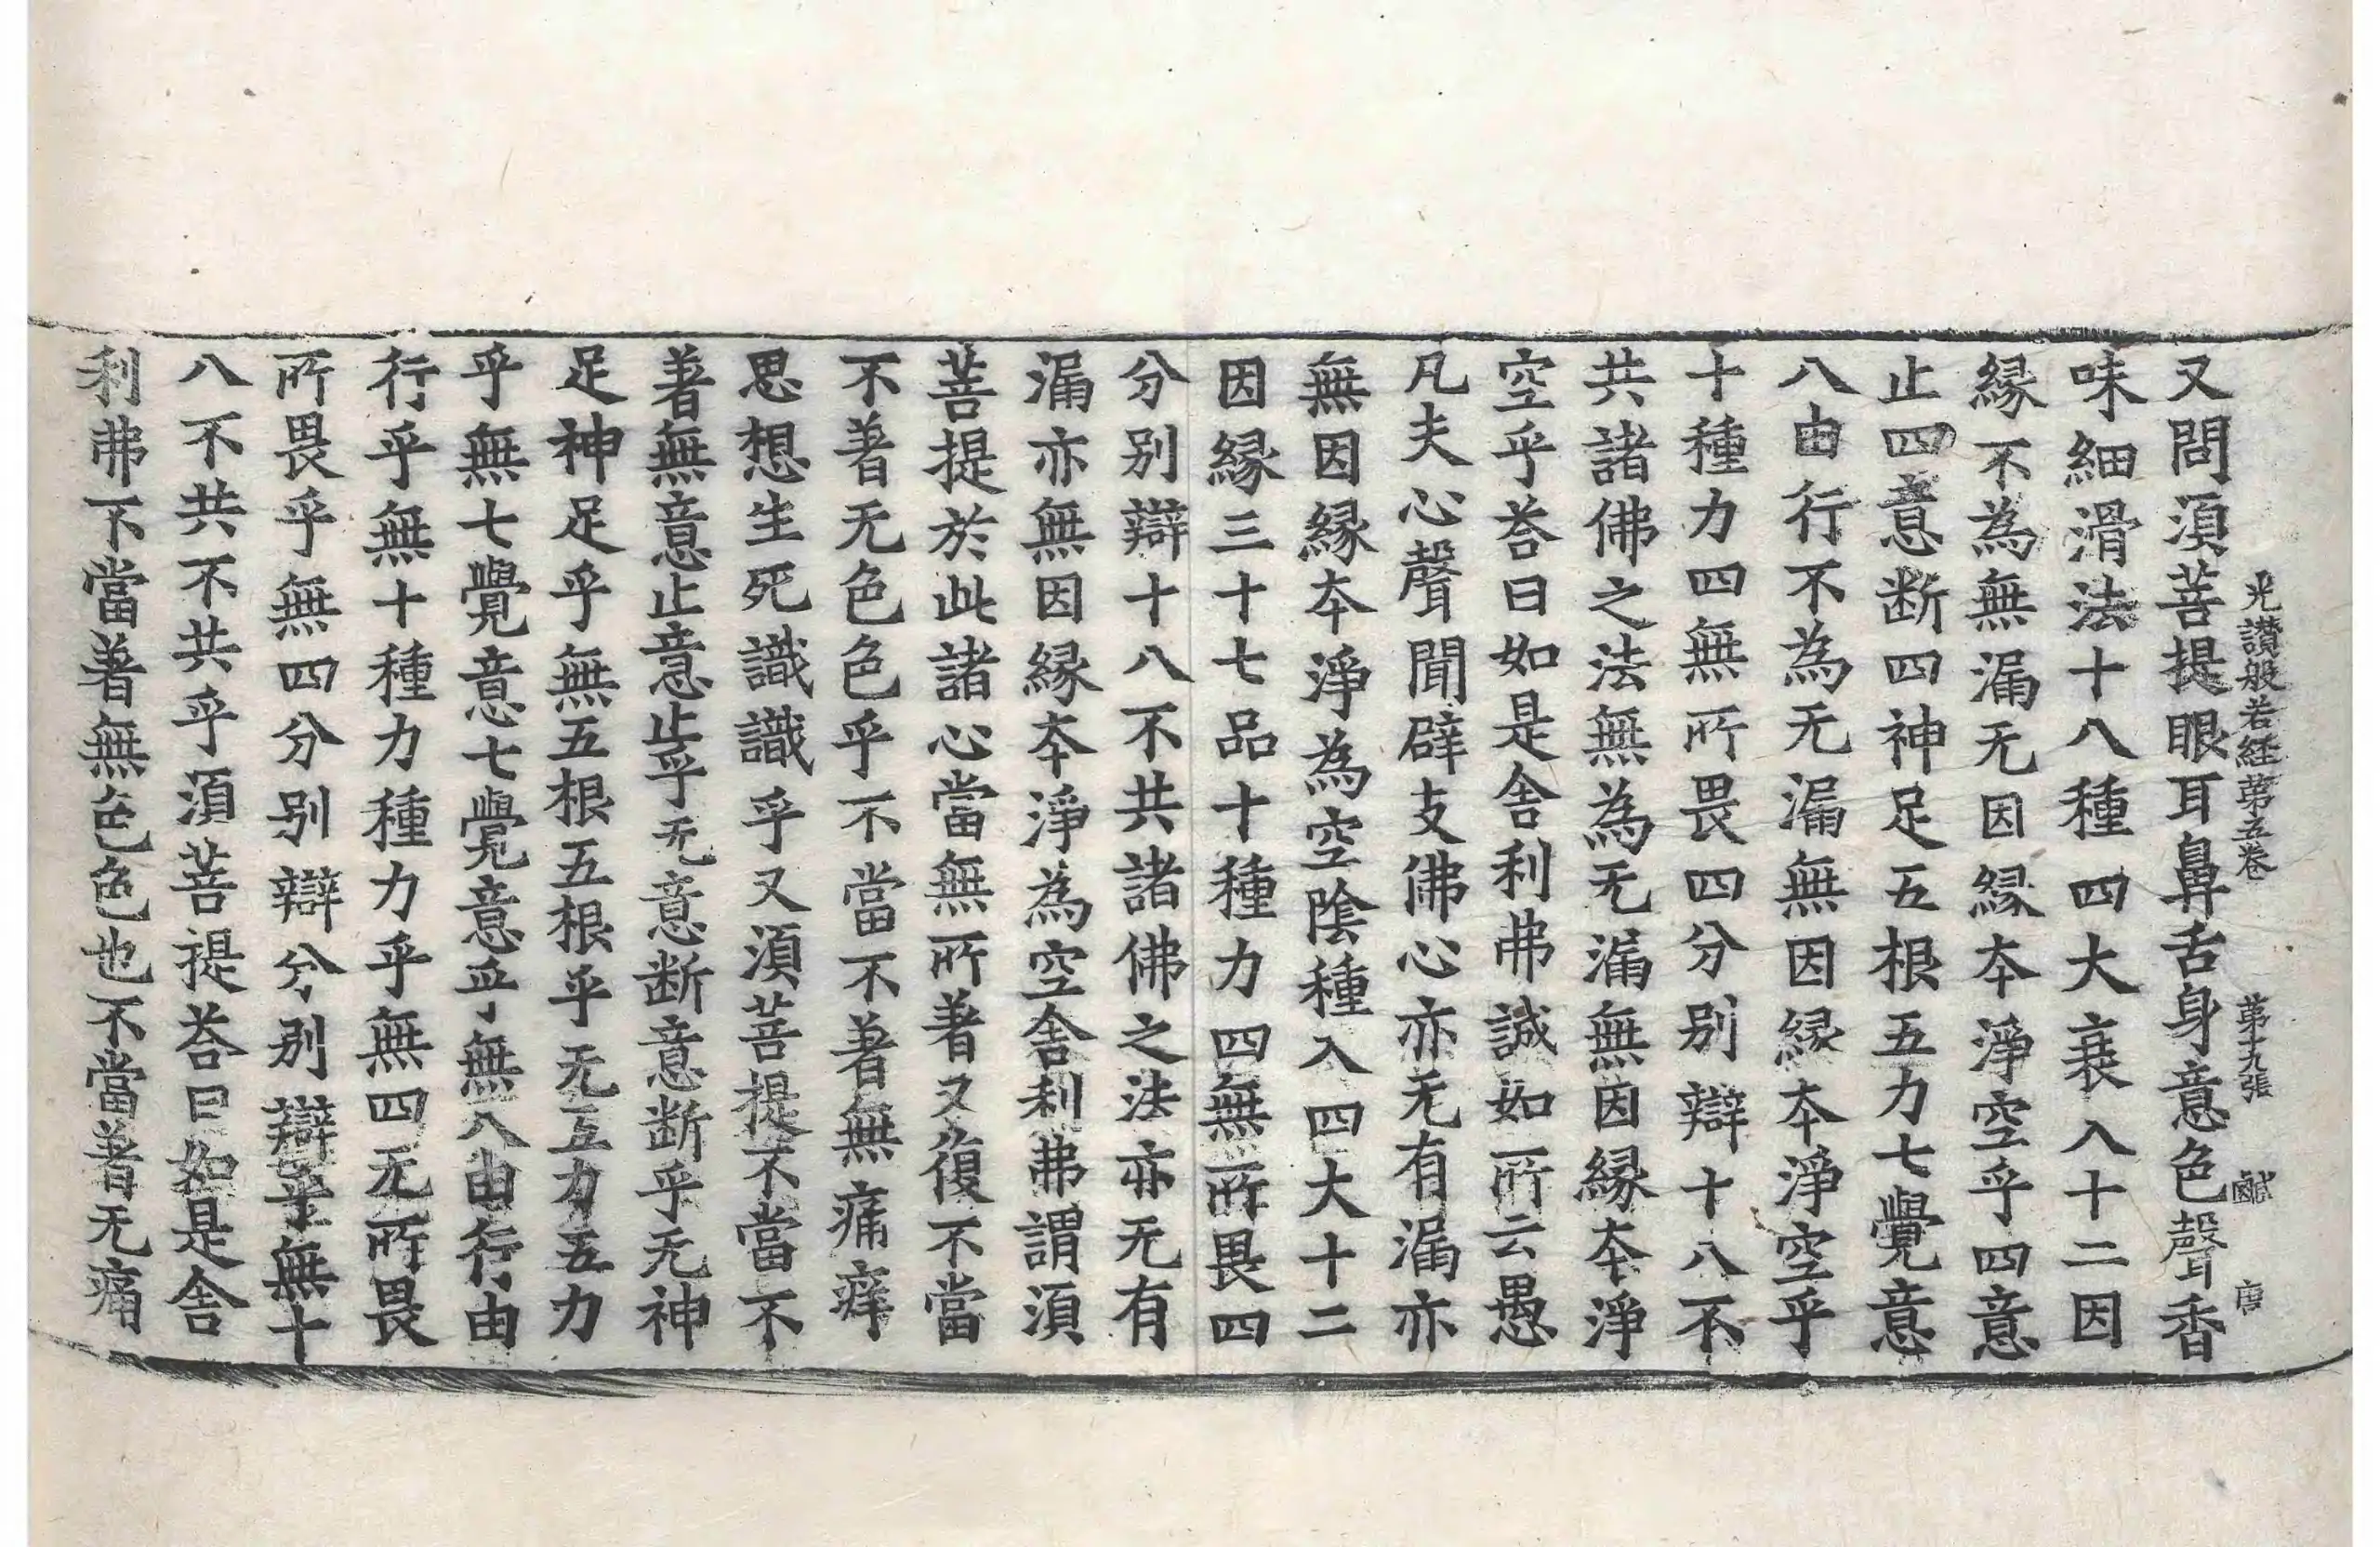 光讃般若経苐五卷 苐十九張 鹹 唐
又問湏菩提眼耳鼻舌身意色聲香
味細滑法十八種四大衰入十二因
縁不為無漏无因縁本淨空乎四意
止四意断四神足五根五力七覺意
八由行不為无漏無因縁本淨空乎
十種力四無所畏四分别辯十八不
共諸佛之法無為无漏無因縁本淨
空乎荅曰如是舎利弗誠如所云愚
凡夫心聲聞辟支佛心亦无有漏亦
無因縁本淨為空陰種入四大十二
因縁三十七品十種力四無所畏四
分别辯十八不共諸佛之法亦无有
漏亦無因縁本淨為空舎利弗謂湏
菩提於此諸心當無所著又復不當
不著无色色乎不當不著無痛痒
思想生死識識乎又湏菩提不當不
著無意止意止乎无意断意断乎无神
足神足乎無五根五根乎无五力五力
乎無七覺意七覺意乎無八由行由
行乎無十種力種力乎無四无所畏
所畏乎無四分别辯分别辯乎無十
八不共不共乎湏菩提荅曰如是舎
利弗不當著無色色也不當著无痛